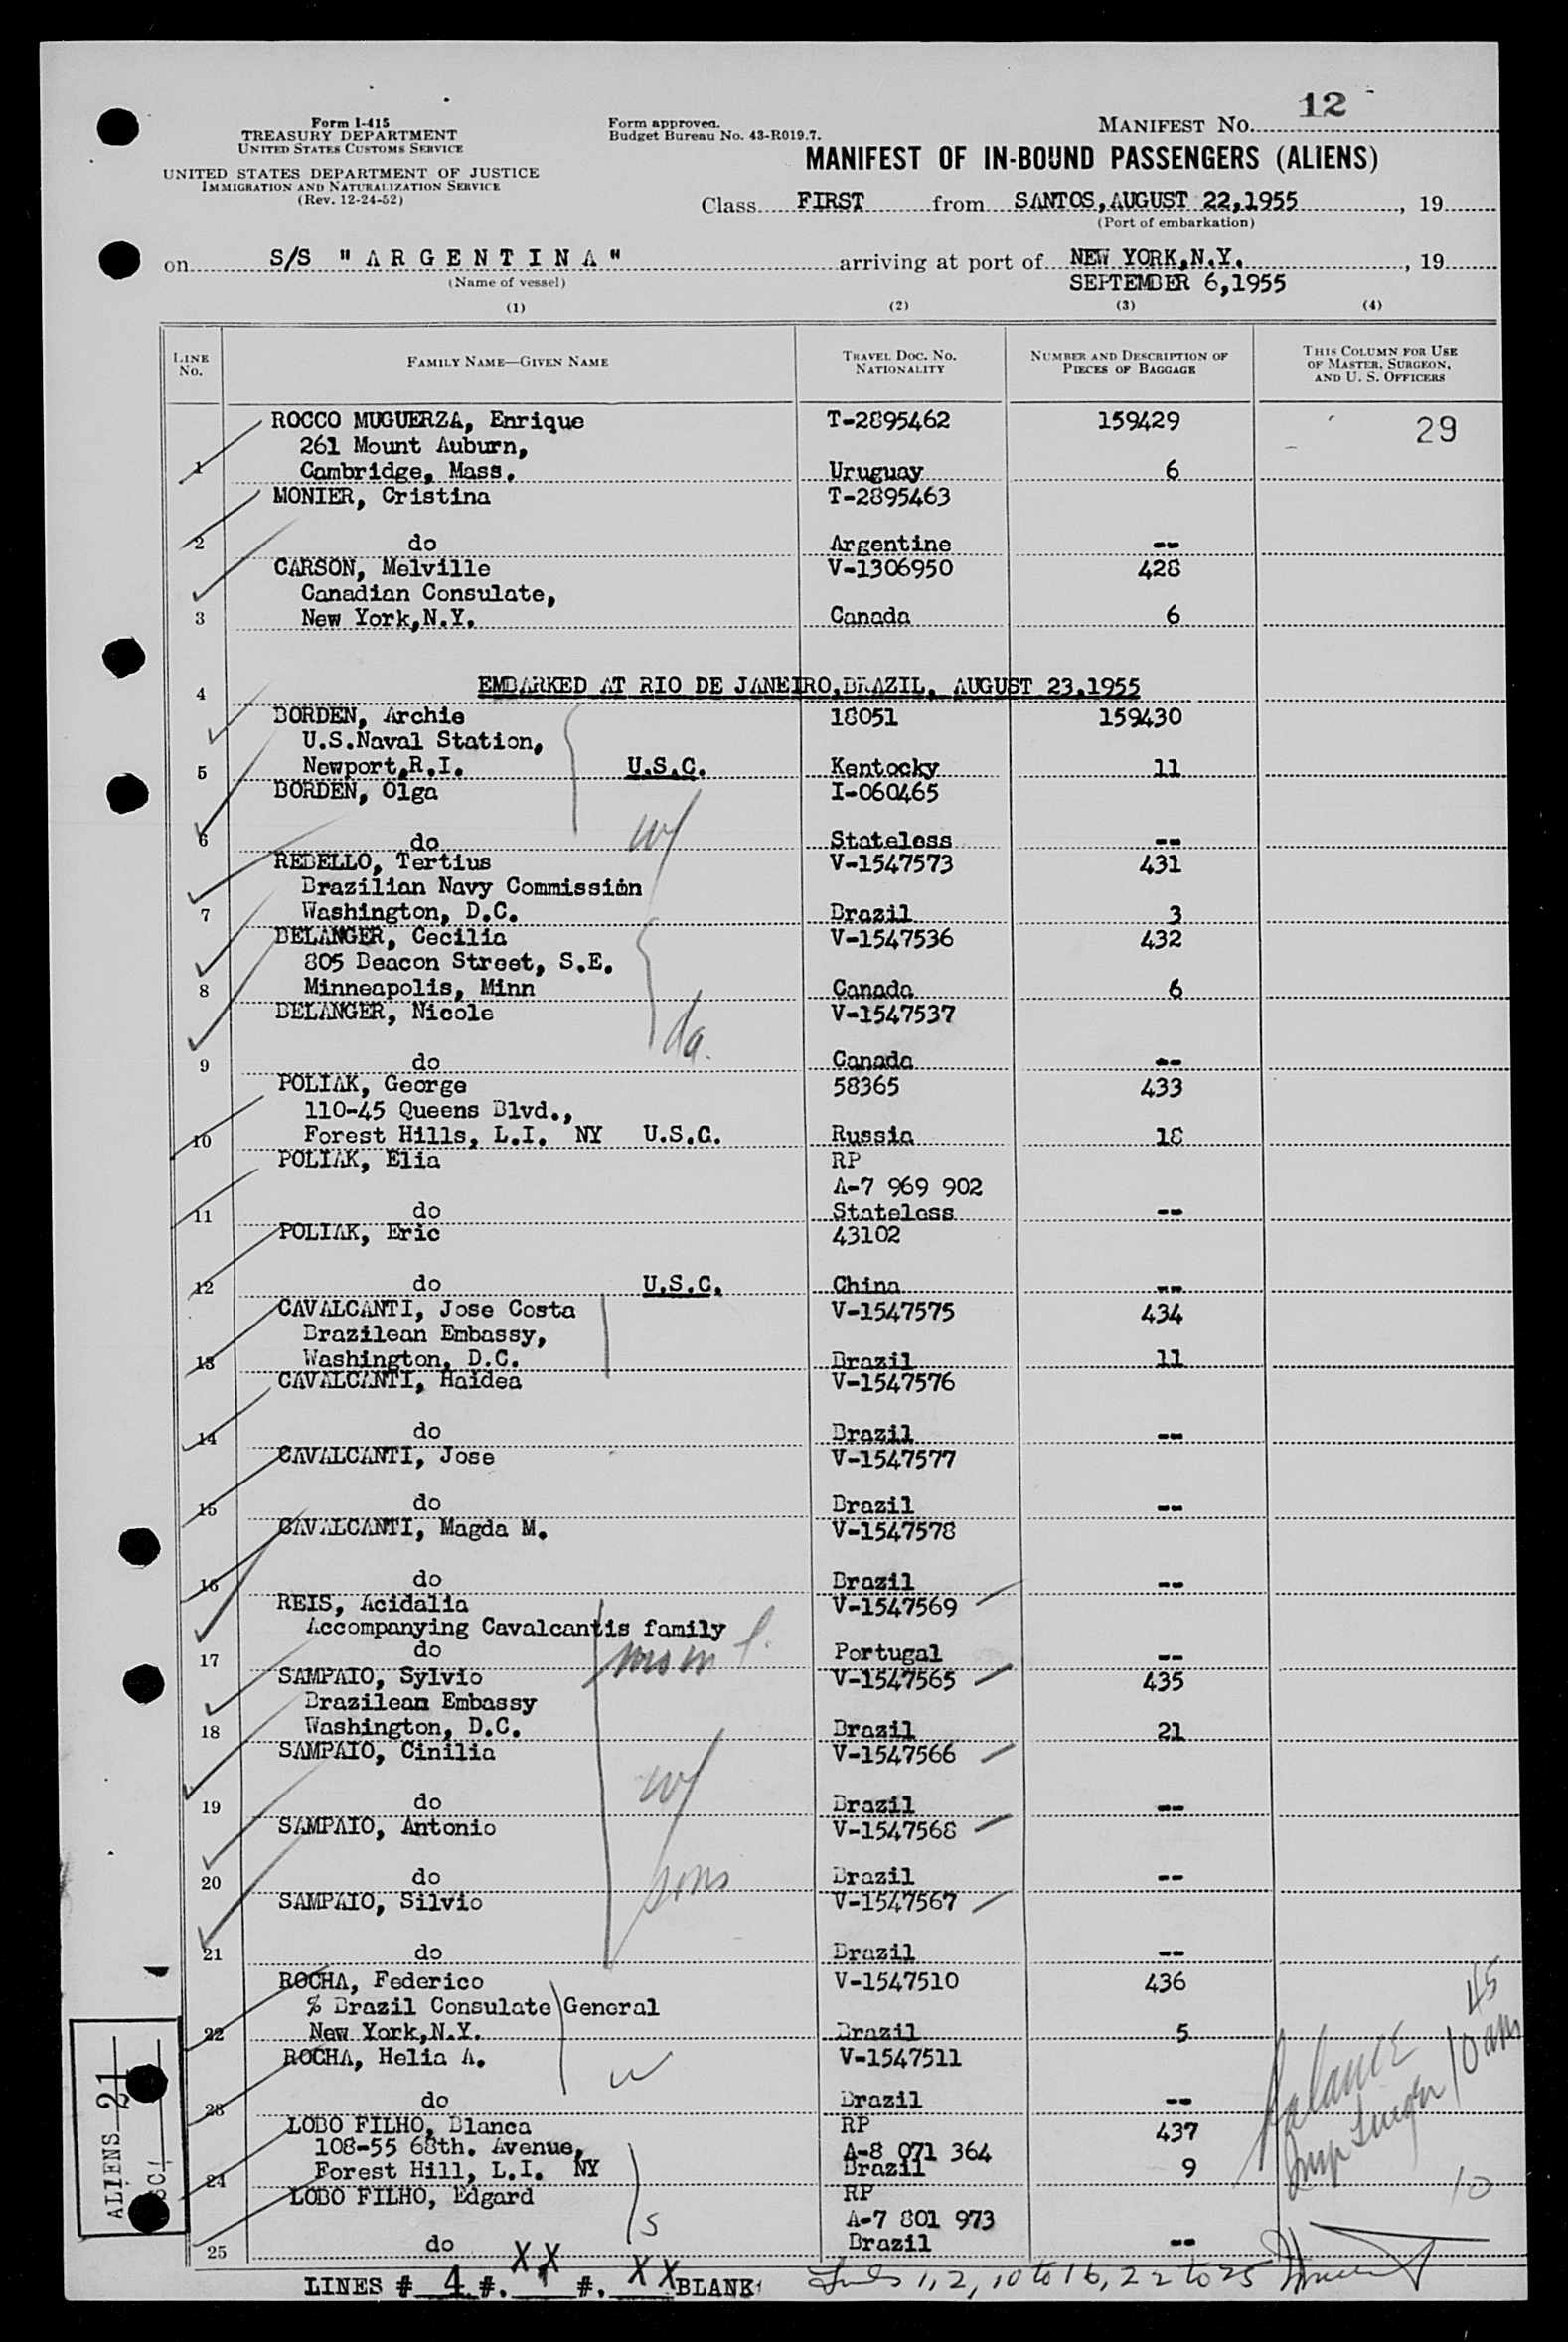 12
Form I-415
TREASURY DEPARTMENT
UNITED STATES CUSTOMS SERVICE
UNITED STATES DEPARTMENT OF JUSTICE
IMMIGRATION AND NATURALIZATION SERVICE
(Rev. 12-24-52)
Form approved.
Budget Bureau No. 43-R019.7.
MANIFEST NO.
MANIFEST OF IN-BOUND PASSENGERS (ALIENS)
Class FIRST from SANTOS, AUGUST 22, 1955, 19
(Port of embarkation)
on S/S "ARGENTINA" arriving at port of NEW YORK, N.Y., 19
(Name of vessel) SEPTEMBER 6, 1955
(1) (2) (3) (4)
LINE No. FAMILY NAME—GIVEN NAME TRAVEL DOC. NO. NATIONALITY NUMBER AND DESCRIPTION OF PIECES OF BAGGAGE THIS COLUMN FOR USE OF MASTER, SURGEON, AND U. S. OFFICERS
ROCCO MUGUERZA, Enrique T-2895462 159429 29
261 Mount Auburn,
1 Cambridge, Mass. Uruguay 6
MONIER, Cristina T-2895463
2 do Argentine --
CARSON, Melville V-1306950 428
Canadian Consulate,
3 New York, N.Y. Canada 6
4 EMBARKED AT RIO DE JANEIRO, BRAZIL, AUGUST 23, 1955
BORDEN, Archie 18051 159430
U.S.Naval Station,
5 Newport, R.I. U.S.C. Kentocky 11
BORDEN, Olga I-060465
6 do w/ Stateless --
REBELLO, Tertius V-1547573 431
Brazilian Navy Commission
7 Washington, D.C. Brazil 3
BELANGER, Cecilia V-1547536 432
805 Beacon Street, S.E.
8 Minneapolis, Minn Canada 6
BELANGER, Nicole V-1547537
da.
9 do Canada --
POLIAK, George 58365 433
110-45 Queens Blvd.,
10 Forest Hills, L.I. NY U.S.C. Russia 18
POLIAK, Elia RP
A-7 969 902
11 do Stateless --
POLIAK, Eric 43102
12 do U.S.C. China --
CAVALCANTI, Jose Costa V-1547575 434
Brazilean Embassy,
13 Washington, D.C. Brazil 11
CAVALCANTI, Haidea V-1547576
14 do Brazil --
CAVALCANTI, Jose V-1547577
15 do Brazil --
CAVALCANTI, Magda M. V-1547578
16 do Brazil --
REIS, Acidalia V-1547569
Accompanying Cavalcantis family
17 do Portugal --
SAMPAIO, Sylvio V-1547565 435
Brazilean Embassy
18 Washington, D.C. Brazil 21
SAMPAIO, Cinilia V-1547566
w/
19 do Brazil --
SAMPAIO, Antonio V-1547568
20 do sons Brazil --
SAMPAIO, Silvio V-1547567
21 do Brazil --
ROCHA, Federico V-1547510 436
% Brazil Consulate General
22 New York, N.Y. Brazil 5
ROCHA, Helia A. V-1547511
w
23 do Brazil --
LOBO FILHO, Blanca RP 437
108-55 68th. Avenue, A-8 071 364
24 Forest Hill, L.I. NY Brazil 9
LOBO FILHO, Edgard RP
s A-7 801 973
25 do Brazil --
45
Balance 10 am
10
LINES # 4 #. XX #. XX BLANK
Lines 1, 2, 10 to 16, 22 to 25
ALIENS 21